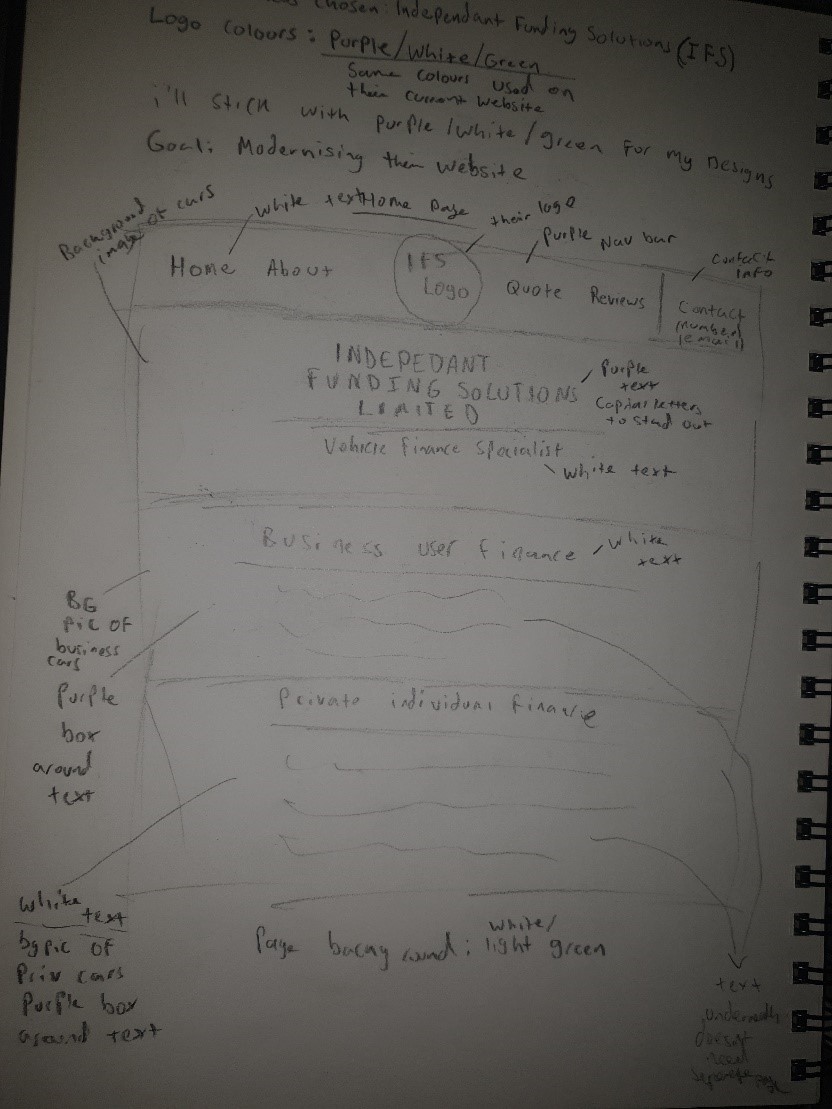 chosen: Independant Funding Solutions (IFS)
Logo colours: Purple/White/Green
Same colours used on
their current website
i'll stick with purple/white/green for my Designs
Goal: Modernising their website
Background
image of cars
white text
Home Page
their logo
Purple Nav bar
Contact
info
Home About
IFS
Logo
Quote Reviews
Contact
number
email
INDEPEDANT
FUNDING SOLUTIONS
LIMITED
Purple
text
Capital letters
to stad out
Vehicle finance specialist
white text
Business user finance
white
text
BG
pic of
business
cars
Purple
box
around
text
Private individual finance
white
text
bg pic of
Priv cars
Purple box
around text
Page background: white/
light green
text
underneath
doesnt
need
seperate page